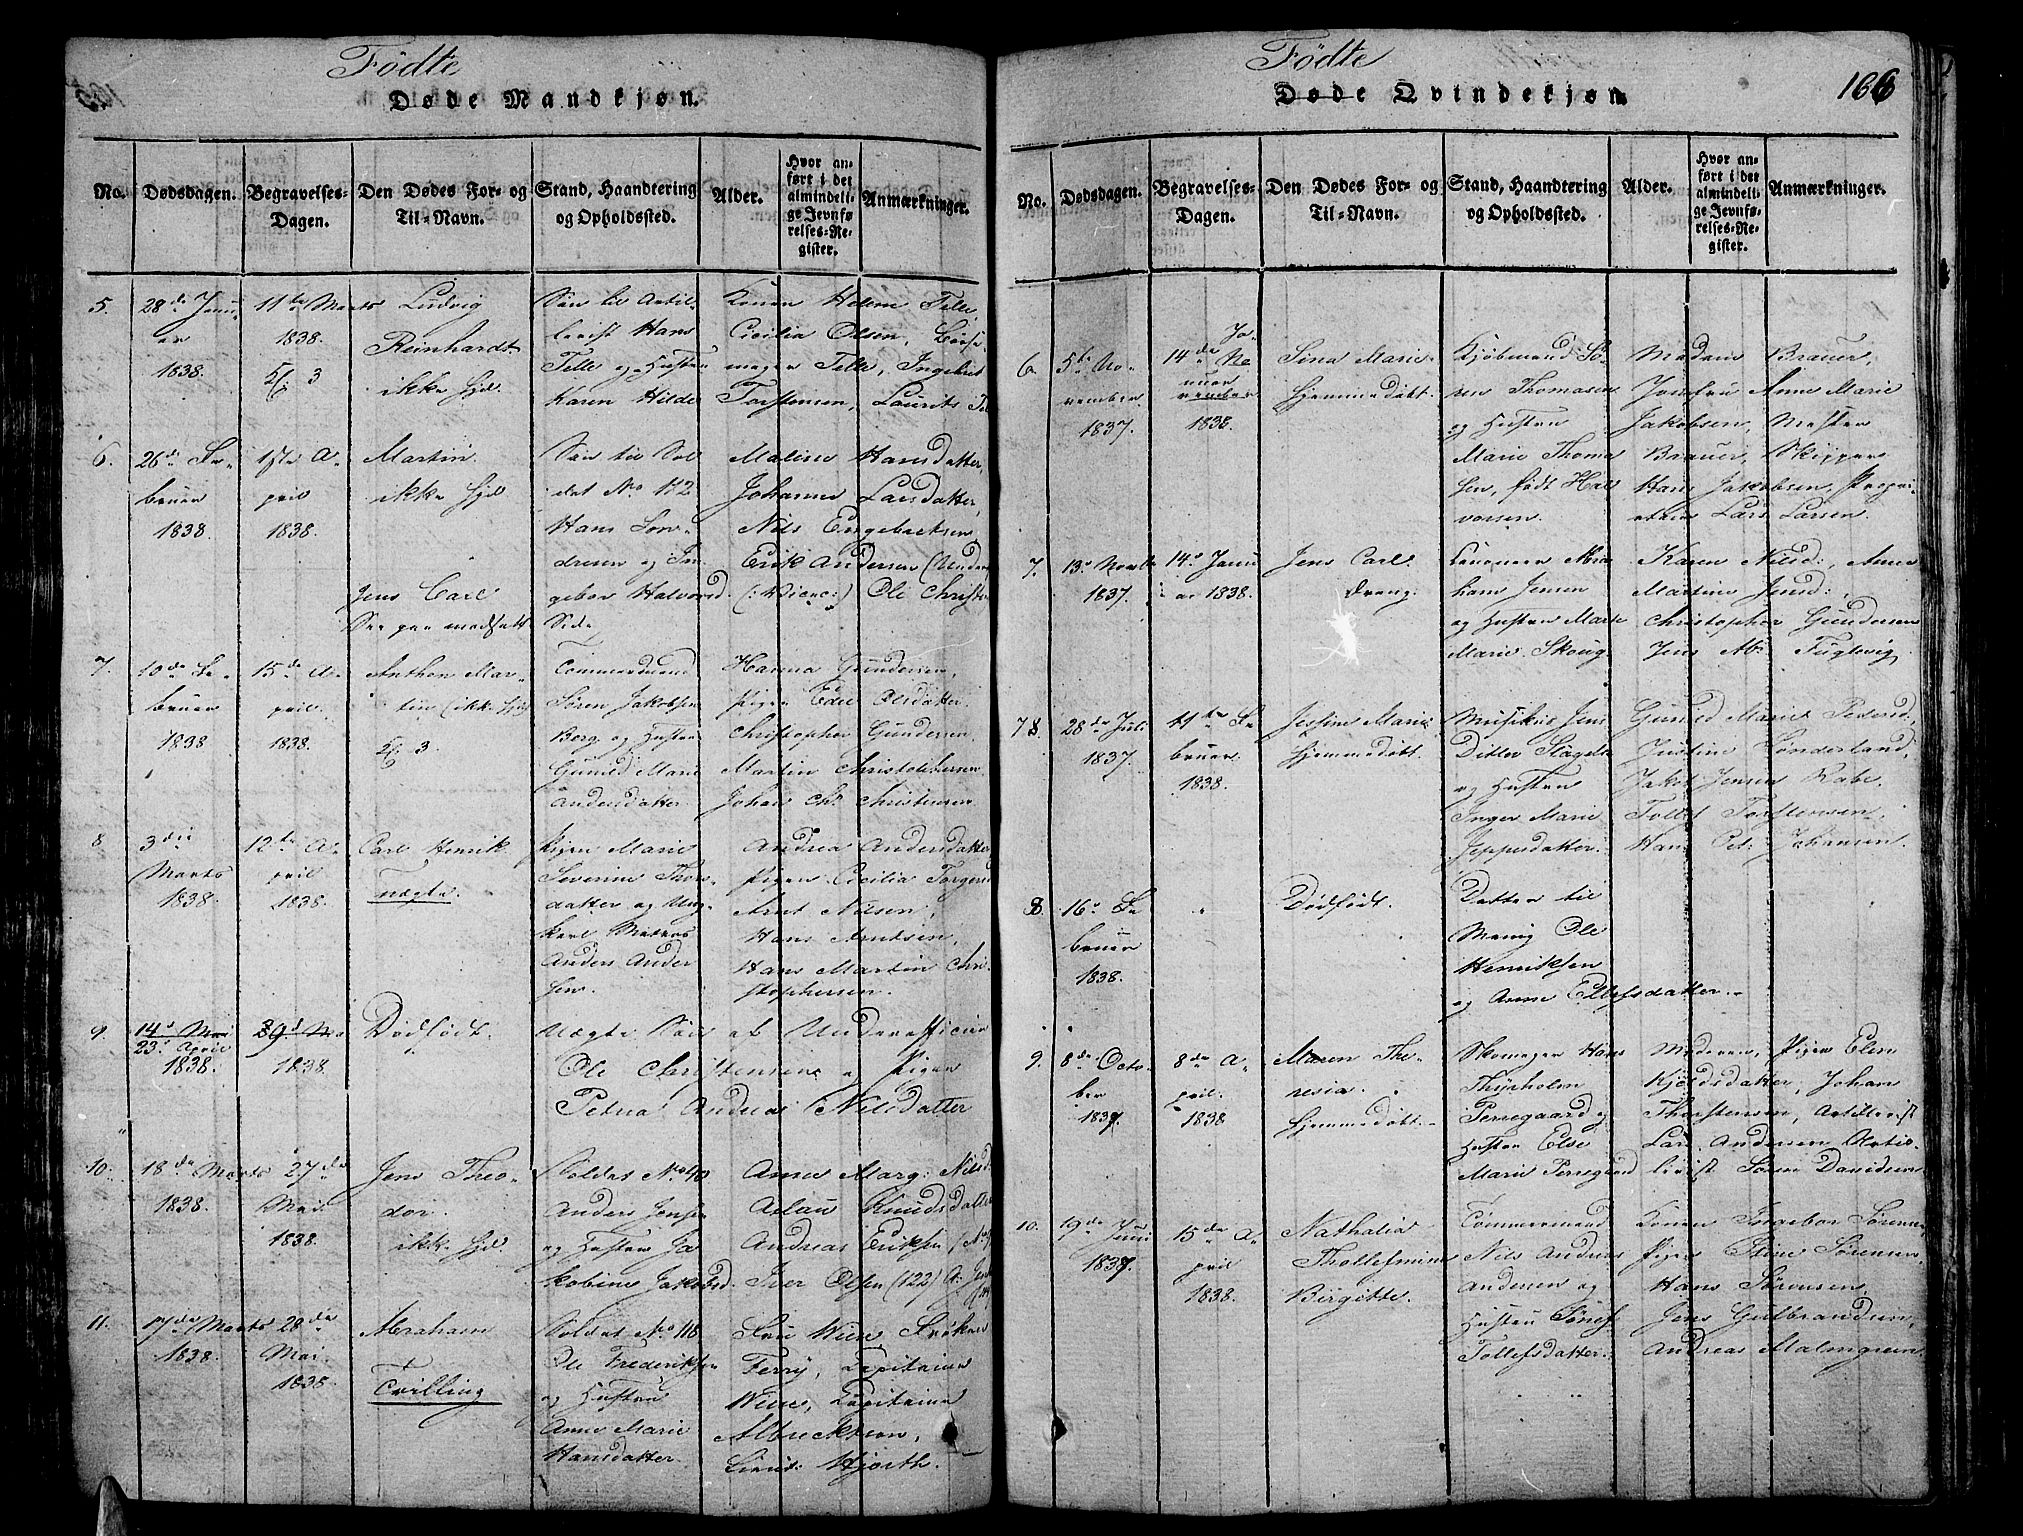 Fødte
Døde Mandkjøn.
No.
Dødsdagen.
Begravelses-
Dagen.
Den Dødes For- og
Til-Navn.
Stand, Haandtering
og Opholdssted.
Alder.
Hvor an-
ført i det
almindeli-
ge Jevnfø-
relses-Re-
gister.
Anmærkninger.
5.
28de Janu-
ar
1838.
11te Marts
1838.
3
Ludvig
Reinhardt
ikke Hjd.
Søn til Artil-
lerist Hans
Telle og Hustru
Karen Hilde
Konen Helene Telle,
Cicilia Olsen,
mager Telle, Ingebret
Torstensen, Laurits
6.
26de Fe-
bruar
1838.
1ste A-
pril
1838.
Martin
ikke Hjd.
Søn til Sol-
dat No 112
Hans Son-
dresen og In-
gebor Halvorsd.
Maline Hansdatter,
Johanne Larsdatter,
Nils Engebretsen
Erik Andersen
Ole Christ
Jens Carl
See paa modsatt Side
7.
10de Fe-
bruar
1838
15de A-
pril
1838.
3.
Anthon Mar-
tin (ikke Hjd
Tømmermand
Søren Jakobsen
Berg og Hustru
Gunild Marie
Andersdatter
Hanna Gundersen,
Pigen Edel Olsdatter
Christopher Gundersen
Martin Christophersen
Johan Ch. Christensen
8
3die
Marts
1838.
12te A-
pril
1838.
Carl Henrik
uægte.
Pigen Marie
Severine Thor-
datter og Ung-
karl Matros
Anders Ander-
sen.
Andrea Andersdatter
Pigen Cicilia Torgersd
Arnt Nilsen,
Hans Arntsen,
Hans Martin Chri-
stophersen.
9.
14d Mai
23d April
1838.
29d Ma
1838.
Dødfødt.
Uægte Søn af Underofficier
Ole Christensen og Pigen
Petrea Andrea Nilsdatter
10.
18de Marts
1838.
27de
Mai
1838.
Jens Theo-
dor.
ikke Hjd.
Soldat No 40
Anders Jensen
og Hustru Ja-
kobine Jakobsd.
Anne Marg: Nilsd
Knudsdatter
Andreas Eriksen
Iver Olsen (122)
11.
17de Marts
1838.
28de
Mai.
1838
Abraham
Tvilling
Soldat No 118
Ole Frederiksen
og Hustru
Anne Marie
Hansdatter.
Fru Wiene Frøken
Ferry, Capitaine
Wiene, Capitaine
Albrecktson,
Lieut: Hjorth.
Fødte
Døde Qvindekjøn
166
No.
Dødsdagen.
Begravelses-
Dagen.
Den Dødes For- og
Til-Navn.
Stand, Haandtering
og Opholdssted.
Alder.
Hvor an-
ført i det
almindeli-
ge Jevnfø-
relses-Re-
gister.
Anmærkninger.
6.
5te No-
vember
1837.
14de Ja-
nuar
vember
1838.
Sina Marie
hjemmedøbt.
Kjøbmand Sø-
ren Thomasen
og Hustru
Marie Thoma-
sen, født Hal-
vorsen.
Madame Brauer,
Jomfru Anne Marie
Jakobsen, Mester
Brauer, Skipper
Hans Jakobsen, Propri-
etair Lars Larsen.
7.
13d Novbr
1837.
14d Janu-
ar 1838.
Jens Carl
Dreng.
Abra-
ham Jensen
og Hustru Maren
Marie Skoug
Karen Nilsd:, Anne
Martine Jensd:,
Christopher Gundersen
Jens Ab: Fuglevig.
7 8.
28de Juli
1837.
11te Fe-
bruar
1838.
Jessine Marie
hjemmedøbt.
Musikus Jens
Ditlev Slagels
og Hustru
Inger Marie
Jeppesdatter.
Gunild Marie Pedersd.,
Justine Sønderland,
Jakob Jensen Rabe
Tollef Torstensen,
Hans Pet. Johansen.
8.
16d Fe-
bruar
1838.
Dødfødt.
Datter til
Ole
Henriksen
og Anne Ellefsdatter.
9.
8de Octo-
ber
1837.
8de A-
pril
1838
Maren The-
resia.
hjemmedøbt.
Skomager Hans
Thyeholm
Perregaard og
Hustru Else
Marie Perregaard
Moderen, Pigen Elen
Kjeldsdatter, Johan
Thorstensen, Artillerist
Lars Andersen Artil-
lerist Søren Davidsen
10.
19de Juni
1837.
15de A-
pril
1838.
Nathalia
Thollefmine
Birgitte.
Tømmermand
Nils Anders
Andersen og
Hustru
Tollefsdatter.
Konen Ingebor Sørensen,
Pigen Stine Sørensen,
Hans Sørensen,
Jens Gulbrandsen,
Andreas Malmgreen.